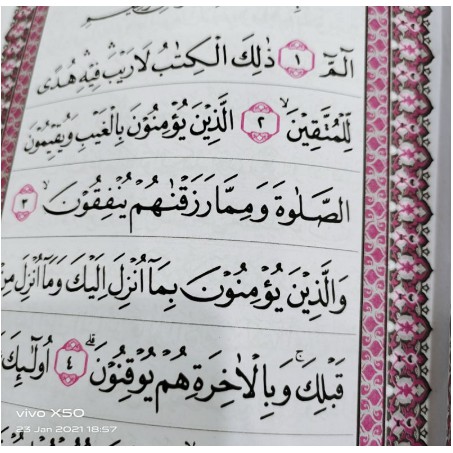 الٓمّٓ ۝١ ذٰلِكَ الْكِتٰبُ لَا رَيْبَ ۛ فِيْهِ ۛ هُدًى
لِّلْمُتَّقِيْنَ ۙ ۝٢ الَّذِيْنَ يُؤْمِنُوْنَ بِالْغَيْبِ وَيُقِيْمُوْنَ
الصَّلٰوةَ وَمِمَّا رَزَقْنٰهُمْ يُنْفِقُوْنَ ۙ ۝٣
وَالَّذِيْنَ يُؤْمِنُوْنَ بِمَآ اُنْزِلَ اِلَيْكَ وَمَآ اُنْزِلَ مِنْ
قَبْلِكَ ۚ وَبِالْاٰخِرَةِ هُمْ يُوْقِنُوْنَ ۗ ۝٤ اُولٰٓئِكَ
vivo X50
23 Jan 2021 18:57